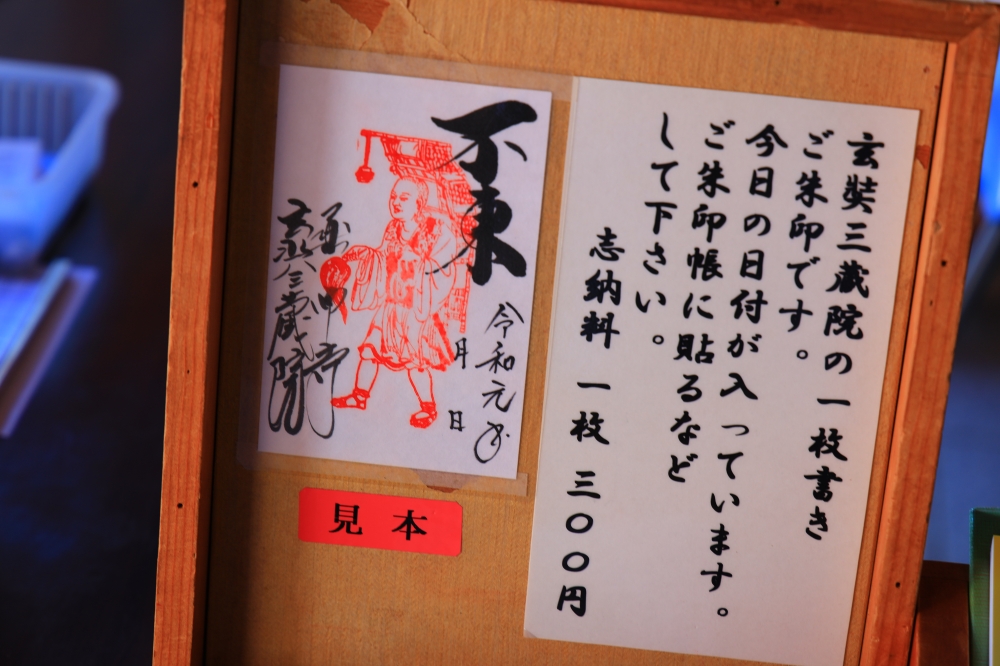 玄奘三蔵院の一枚書き
ご朱印です。
今日の日付が入っています。
ご朱印帳に貼るなど
して下さい。
志納料 一枚 三〇〇円
不東
令和元年
月 日
玄奘三蔵院
見本